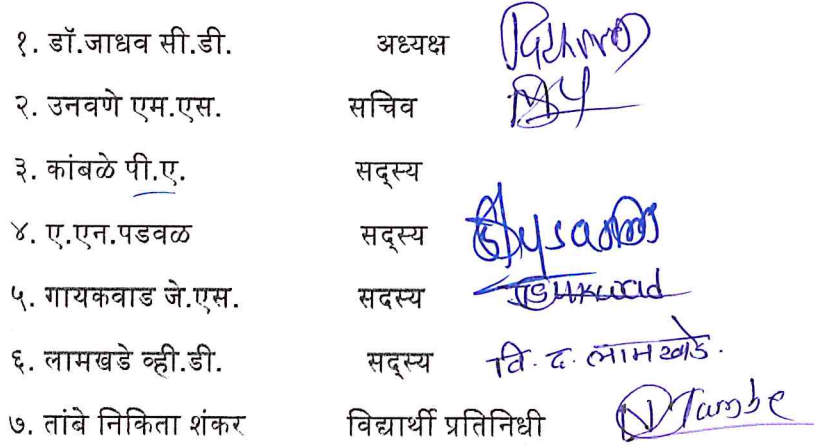 १. डॉ.जाधव सी.डी. अध्यक्ष
२. उनवणे एम.एस. सचिव
३. कांबळे पी.ए. सदस्य
४. ए.एन.पडवळ सदस्य
५. गायकवाड जे.एस. सदस्य
६. लामखडे व्ही.डी. सदस्य वि. द. लामखडे.
७. तांबे निकिता शंकर विद्यार्थी प्रतिनिधी N Tambe